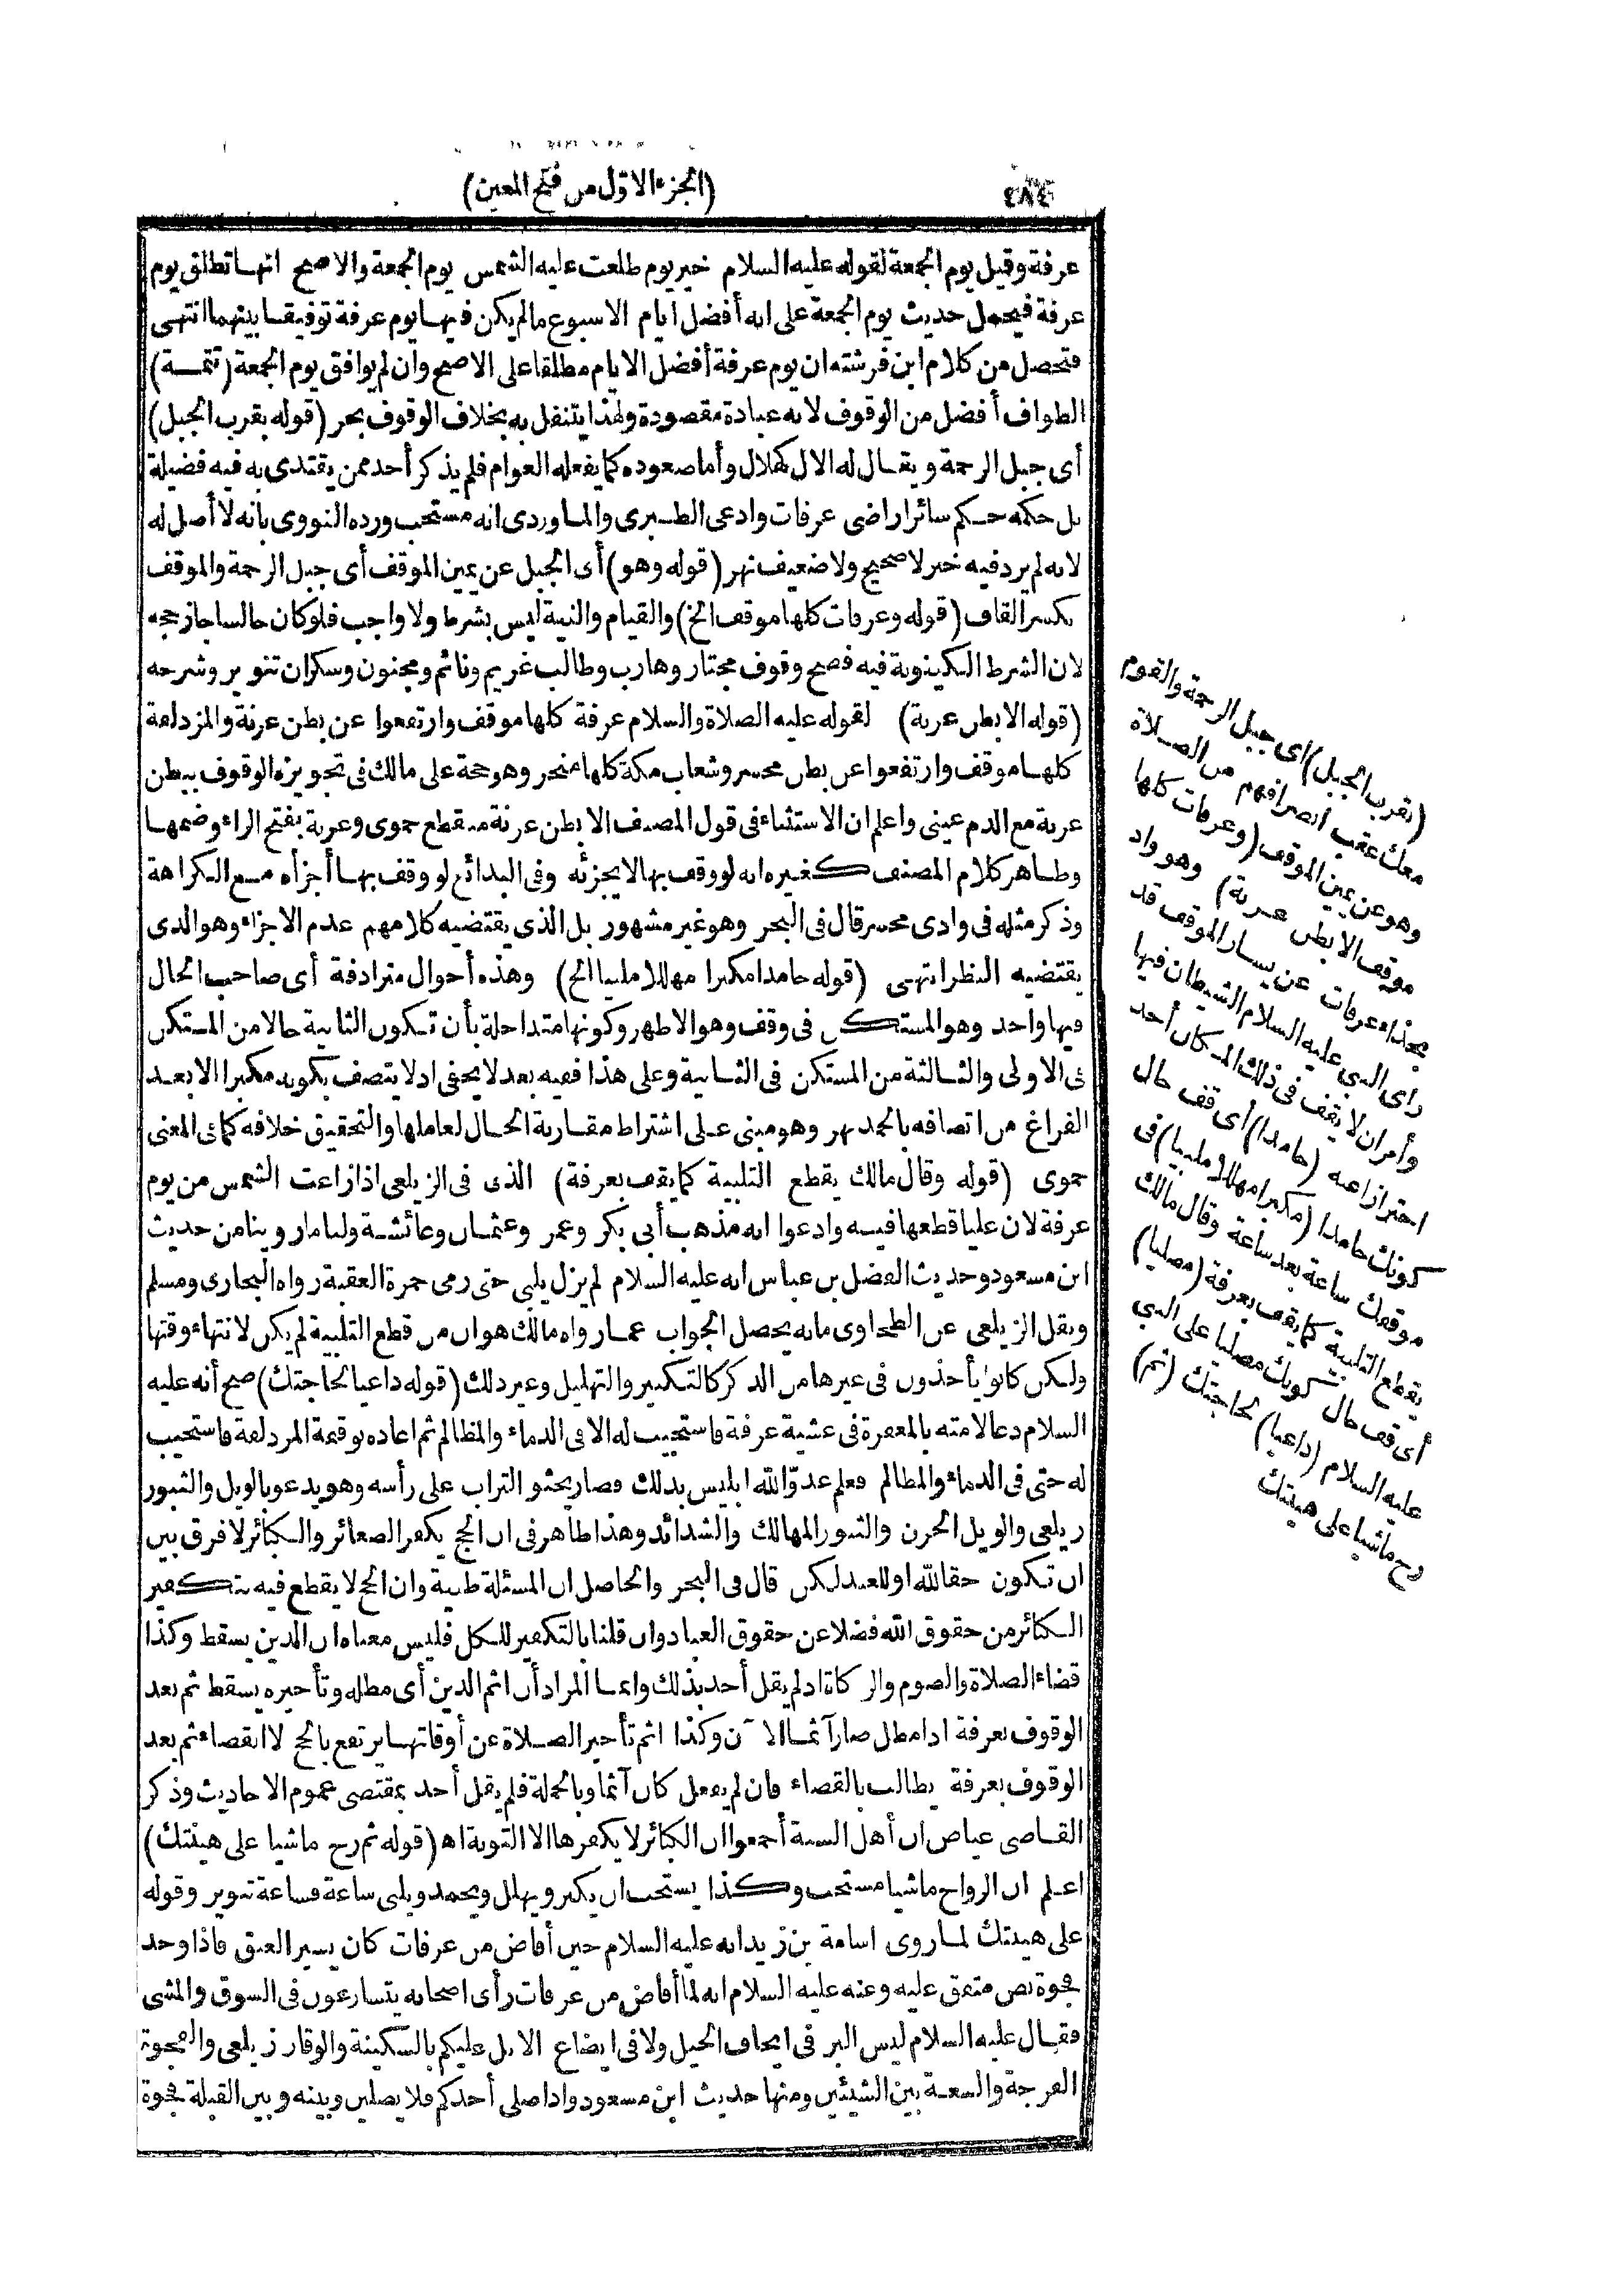 ٤٨٤
(الجزء الاول من فتح المعين)
عرفة وقيل يوم الجمعة لقوله عليه السلام خير يوم طلعت عليه الشمس يوم الجمعة والاصح انها تطلق يوم
عرفة فيحمل حديث يوم الجمعة على انه أفضل أيام الاسبوع مالم يكن فيها يوم عرفة توفيقا بينهما انتهى
فتحصل من كلام ابن فرشته ان يوم عرفة أفضل الايام مطلقا على الاصح وان لم يوافق يوم الجمعة (تتمة)
الطواف أفضل من الوقوف لانه عبادة مقصودة ولهذا يتنفل به بخلاف الوقوف بحر (قوله بقرب الجبل)
أى جبل الرحمة ويقال له الال كهلال وأما صعوده كما يفعله العوام فلم يذكر أحد ممن يقتدى به فيه فضيلة
بل حكمه حكم سائر اراضى عرفات وادعى الطبرى والماوردى انه مستحب ورده النووى بأنه لا أصل له
لانه لم يرد فيه خبر لا صحيح ولا ضعيف نهر (قوله وهو) أى الجبل عن يمين الموقف أى جبل الرحمة والموقف
بكسر القاف (قوله وعرفات كلها موقف الخ) والقيام والنية ليس بشرط ولا واجب فلو كان جالسا جاز حجه
لان الشرط الكينونة فيه فصح وقوف مجتاز وهارب وطالب غريم ونائم ومجنون وسكران تنوير وشرحه
(قوله الا بطن عرنة) لقوله عليه الصلاة والسلام عرفة كلها موقف وارتفعوا عن بطن عرنة والمزدلفة
كلها موقف وارتفعوا عن بطن محسر وشعاب مكة كلها منحر وهو حجة على مالك فى تجويزه الوقوف ببطن
عرنة مع الدم عينى واعلم ان الاستثناء فى قول المصنف الا بطن عرنة منقطع حموى وعرنة بفتح الراء وضمها
وظاهر كلام المصنف كغيره انه لو وقف بها لا يجزئه وفى البدائع لو وقف بها أجزأه مع الكراهة
وذكر مثله فى وادى محسر قال فى البحر وهو غير مشهور بل الذى يقتضيه كلامهم عدم الاجزاء وهو الذى
يقتضيه النظر انتهى (قوله حامدا مكبرا مهللا ملبيا الخ) وهذه أحوال مترادفة أى صاحب الحال
فيها واحد وهو المستكن فى وقف وهو الاظهر وكونها متداخلة بأن تكون الثانية حالا من المستكن
فى الاولى والثالثة من المستكن فى الثانية وعلى هذا ففيه بعد لا يخفى اذ لا يتصف بكونه مكبرا الا بعد
الفراغ من اتصافه بالحمد نهر وهو مبنى على اشتراط مقارنة الحال لعاملها والتحقيق خلافه كما فى المغنى
حموى (قوله وقال مالك يقطع التلبية كما يقف بعرفة) الذى فى الزيلعى اذا زاغت الشمس من يوم
عرفة لان عليا قطعها فيه وادعوا انه مذهب أبى بكر وعمر وعثمان وعائشة ولنا ما روينا من حديث
ابن مسعود وحديث الفضل بن عباس انه عليه السلام لم يزل يلبى حتى رمى جمرة العقبة رواه البخارى ومسلم
ونقل الزيلعى عن الطحاوى ما به يحصل الجواب عما رواه مالك هو ان من قطع التلبية لم يكن لانتهاء وقتها
ولكن كانوا يأخذون فى غيرها من الذكر كالتكبير والتهليل وغير ذلك (قوله داعيا لحاجتك) صح أنه عليه
السلام دعا لامته بالمغفرة فى عشية عرفة فاستجيب له الا فى الدماء والمظالم ثم اعاده بوقفة المزدلفة فاستجيب
له حتى فى الدماء والمظالم فعلم عدوّ الله ابليس بذلك فصار يحثو التراب على رأسه وهو يدعو بالويل والثبور
زيلعى والويل الحزن والثبور المهالك والشدائد وهذا ظاهر فى ان الحج يكفر الصغائر والكبائر لا فرق بين
ان تكون حقا لله او للعبد لكن قال فى البحر والحاصل ان المسئلة ظنية وان الحج لا يقطع فيه بتكفير
الكبائر من حقوق الله فضلا عن حقوق العباد وان قلنا بالتكفير للكل فليس معناه ان الدين يسقط وكذا
قضاء الصلاة والصوم والزكاة اذ لم يقل أحد بذلك وانما المراد أن اثم الدين أى مطله وتأخيره يسقط ثم بعد
الوقوف بعرفة اذا مطل صار آثما الآن وكذا اثم تأخير الصلاة عن أوقاتها يرتفع بالحج لا القضاء ثم بعد
الوقوف بعرفة يطالب بالقضاء فان لم يفعل كان آثما وبالجملة فلم يقل أحد بمقتضى عموم الاحاديث وذكر
القاضى عياض ان أهل السنة أجمعوا ان الكبائر لا يكفرها الا التوبة اه (قوله ثم رح ماشيا على هينتك)
اعلم ان الرواح ماشيا مستحب وكذا يستحب ان يكبر ويهلل ويحمد ويلبى ساعة فساعة تنوير وقوله
على هينتك لما روى اسامة بن زيد انه عليه السلام حين أفاض من عرفات كان يسير العنق فاذا وجد
فجوة نص متفق عليه وعنه عليه السلام انه لما أفاض من عرفات رأى اصحابه يتسارعون فى السوق والمشى
فقال عليه السلام ليس البر فى ايجاف الخيل ولا فى ايضاع الابل عليكم بالسكينة والوقار زيلعى والفجوة
الفرجة والسعة بين الشيئين ومنها حديث ابن مسعود واذا صلى أحدكم فلا يصلين وبينه وبين القبلة فجوة
(بقرب الجبل) أى جبل الرحمة والقوم
معك عقب انصرافهم من الصلاة
وهو عن يمين الموقف (وعرفات كلها
موقف الا بطن عرنة) وهو واد
بحذاء عرفات عن يسار الموقف قد
رأى النبى عليه السلام الشيطان فيها
وأمر ان لا يقف فى ذلك المكان أحد
احترازا عنه (حامدا) أى قف حال
كونك حامدا (مكبرا مهللا ملبيا) فى
موقفك ساعة بعد ساعة وقال مالك
يقطع التلبية كما يقف بعرفة (مصليا)
أى قف حال كونك مصليا على النبى
عليه السلام (داعيا) لحاجتك (ثم)
رح ماشيا على هينتك